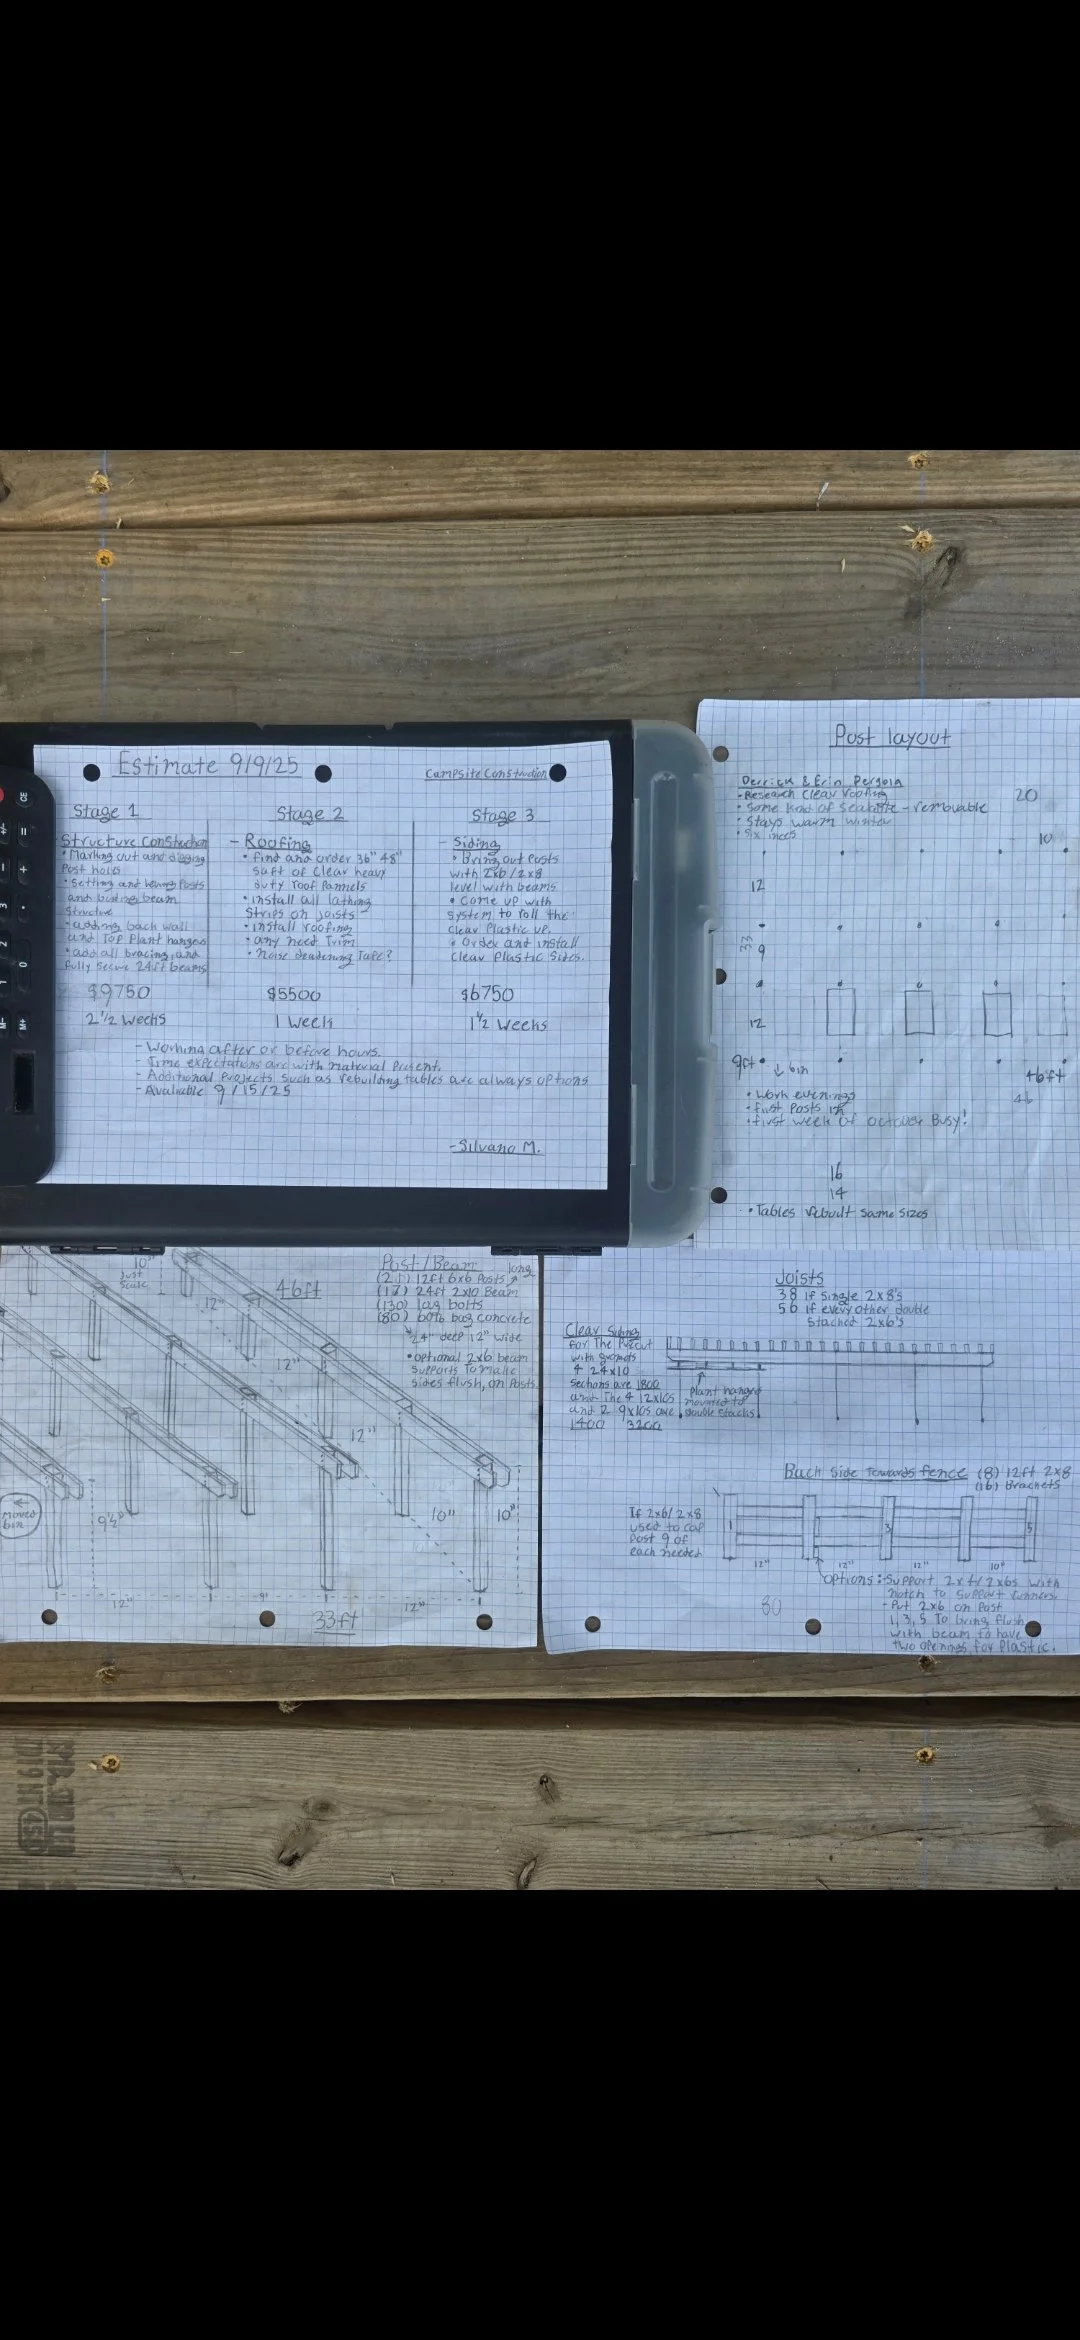 Estimate 9/9/25
Campsite Construction
Stage 1
Structure Construction
• Marking out and digging
Post holes
• Setting and leveling Posts
and busting beam
Structure
- adding back wall
and Top Plant hangers
• add all bracing, and
fully secure 24ft beams
$9750
2 1/2 Weeks
Stage 2
- Roofing
• find and order 36" 48"
of Clear heavy
duty roof Pannels
• install all lathing
Strips on joists
• install roofing
• any need Trim
• noise deadening Tape?
$5500
1 Week
Stage 3
- Siding
• Bring out Posts
with 2x6/2x8
level with beams
• Come up with
System to roll the
Clear Plastic up.
• Order and install
Clear Plastic Sides.
$6750
1 1/2 Weeks
- Working after or before hours
- Time expectations are with material Present.
- Additional Projects such as rebuilding tables are always options
- Available 9/15/25
-Silvano M.
Post layout
Derrick & Erin Pergola
• Research Clear roofing
• Some kind of - removable
• Stays warm winter
• Six
20
10
12
33
9
12
9ft
↓ bin
46ft
46
• Work evenings
• first Posts in
• first week of october Busy!
16
14
• Tables rebuilt same sizes
10"
Just
Scale
46ft
12"
12"
12"
Post/Beam
long
12ft 6x6 Posts
24ft 2x10 Beam
(130) lag bolts
(80) 60lb bag concrete
24" deep 12" wide
• optional 2x6 beam
supports To make
sides flush, on Posts.
←
moved
bin
9½"
10"
10"
12"
9"
12"
33ft
Joists
38 if Single 2x8's
56 if every other double
Stacked 2x6's
Clear Siding
for The Precut
with gromets
4 24x10
Sections are 1800
and The 4 12x10s
and 2 9x10s are
1400 3200
Plant hanger
mounted to
double stacks
Back Side Towards fence (8) 12ft 2x8
(16) Brackets
If 2x6/2x8
used to cap
Post 9 of
each needed
1
3
5
12"
12"
12"
10"
80
Options: Support 2x4/2x6s with
notch to support runners.
- Put 2x6 on Post
1,3,5 To bring flush
with beam to have
two openings for Plastic.